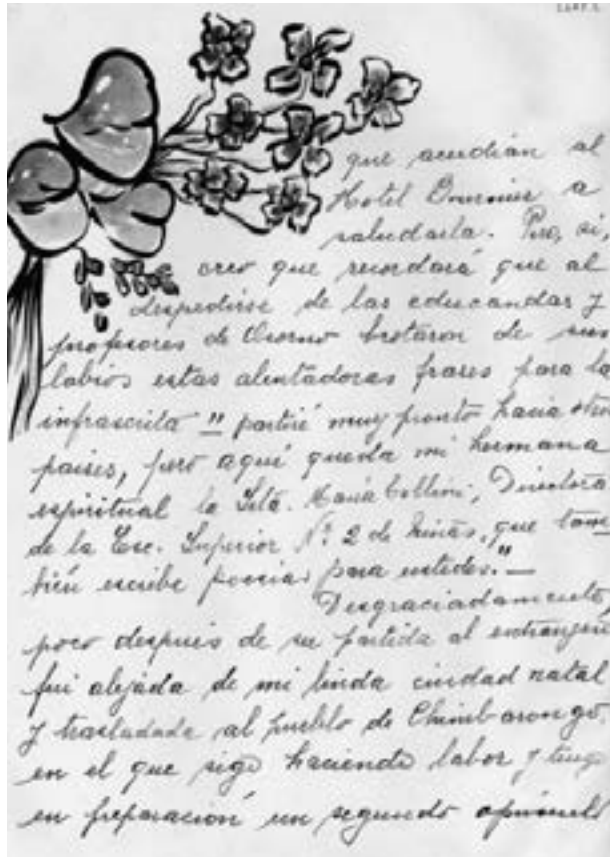 que acudián al
Hotel a
saludarla. Pero, si,
creo que recordará que al
despedirse de las educandas y
profesores de Osorno brotaron de sus
labios estas alentadoras frases para la
infrascrita " partiré muy pronto hacia otros
paises, pero aquí queda mi hermana
espiritual la Srta. María Collini, Directora
de la Esc. Superior Nº 2 de Niñas, que tam-
bién escribe poesías para ustedes." —
Desgraciadamente,
poco después de su partida al extranjero
fuí alejada de mi linda ciudad natal
y trasladada al pueblo de Chimbarongo,
en el que sigo haciendo labor y tengo
en preparación un segundo opúsculo